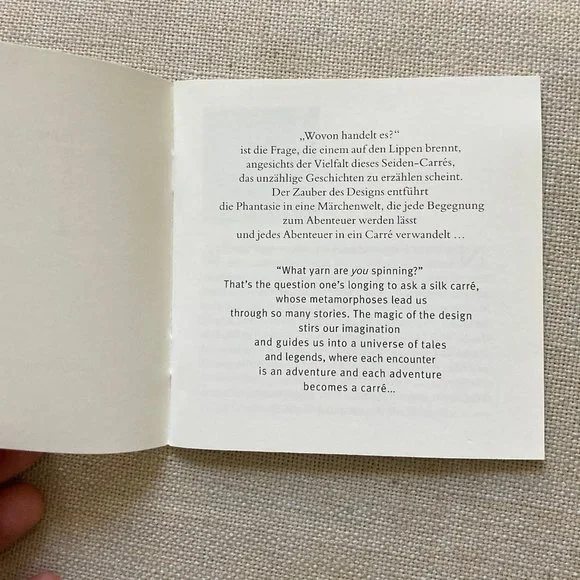 „Wovon handelt es?“
ist die Frage, die einem auf den Lippen brennt,
angesichts der Vielfalt dieses Seiden-Carrés,
das unzählige Geschichten zu erzählen scheint.
Der Zauber des Designs entführt
die Phantasie in eine Märchenwelt, die jede Begegnung
zum Abenteuer werden lässt
und jedes Abenteuer in ein Carré verwandelt ...
“What yarn are you spinning?”
That’s the question one’s longing to ask a silk carré,
whose metamorphoses lead us
through so many stories. The magic of the design
stirs our imagination
and guides us into a universe of tales
and legends, where each encounter
is an adventure and each adventure
becomes a carré...